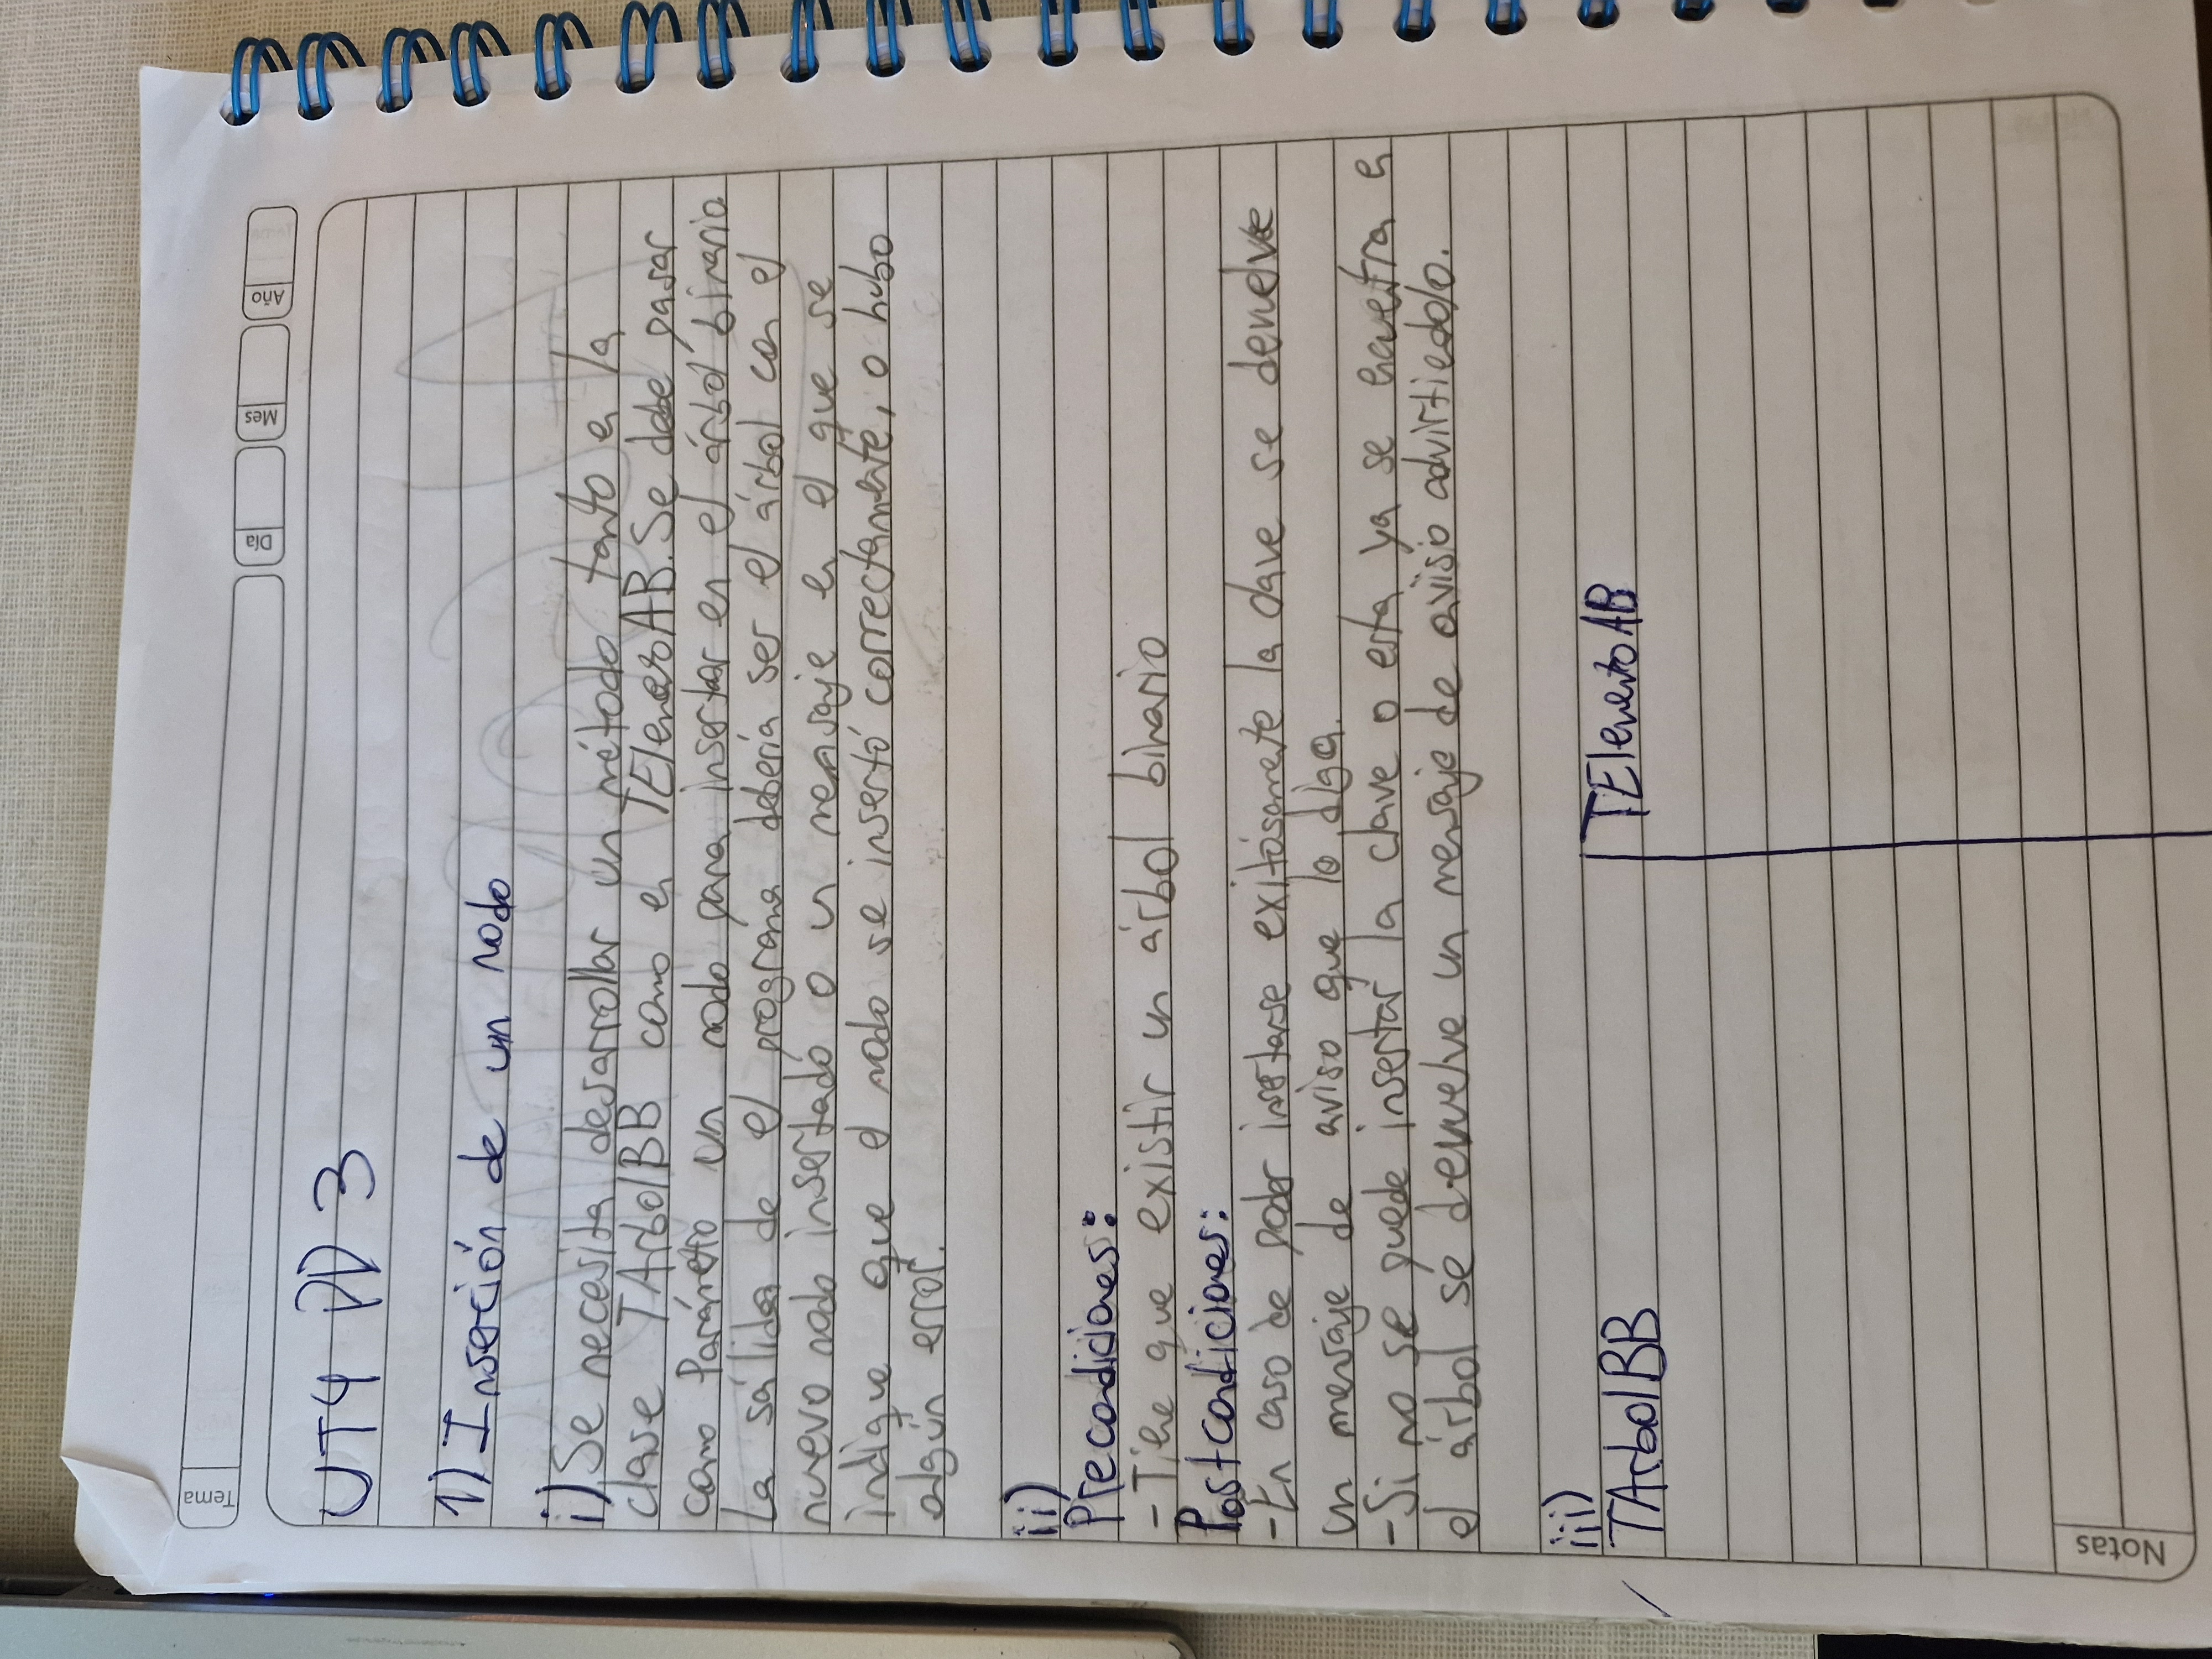 Tema
Día
Mes
Año
UT4 PD 3
1) Inserción de un nodo
i) Se necesita desarrollar un método tanto en la
clase TArbolBB como en TElementoAB. Se debe pasar
como Parámetro un nodo para insertar en el árbol binario.
La sálida de el programa debería ser el árbol con el
nuevo nodo insertado o un mensaje en el que se
indique que el nodo se insertó correctamente, o hubo
algún error.
ii)
Precondiciones:
- Tiene que existir un árbol binario
Postcondiciones:
- En caso de poder insertarse exitósamente la clave se devuelve
un mensaje de aviso que lo diga.
- Si no se puede insertar la clave o esta ya se encuentra en
el árbol se devuelve un mensaje de aviso advirtiedolo.
iii)
TArbolBB
TElementoAB
Notas